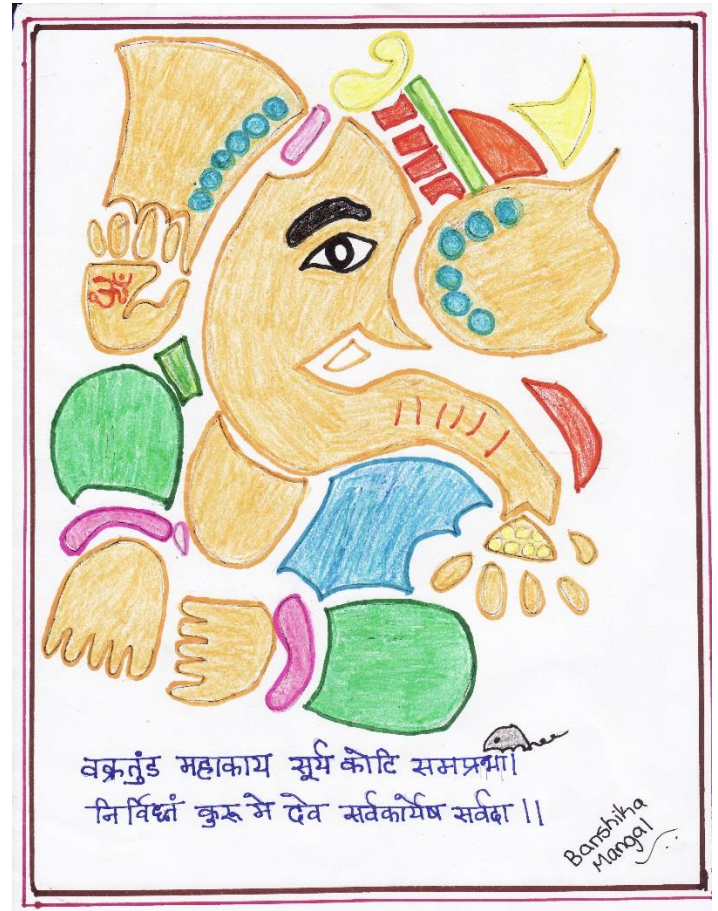 ॐ
वक्रतुंड महाकाय सूर्य कोटि समप्रभा।
निर्विघ्नं कुरू मे देव सर्वकार्येष सर्वदा ||
Banshika
Mangal